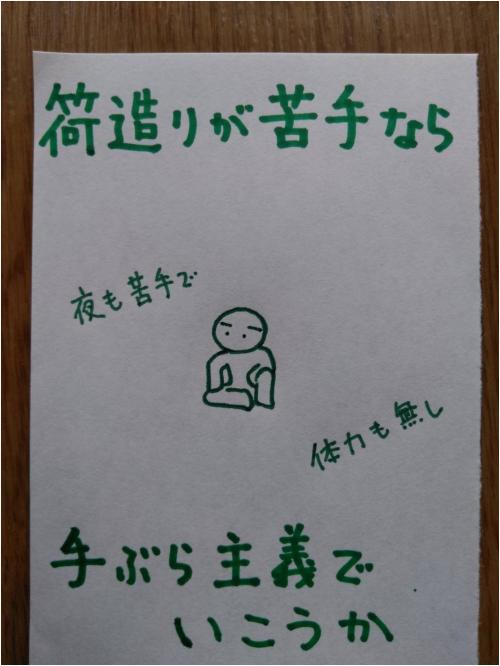 荷造りが苦手なら
夜も苦手で
体力も無し
手ぶら主義で
いこうか